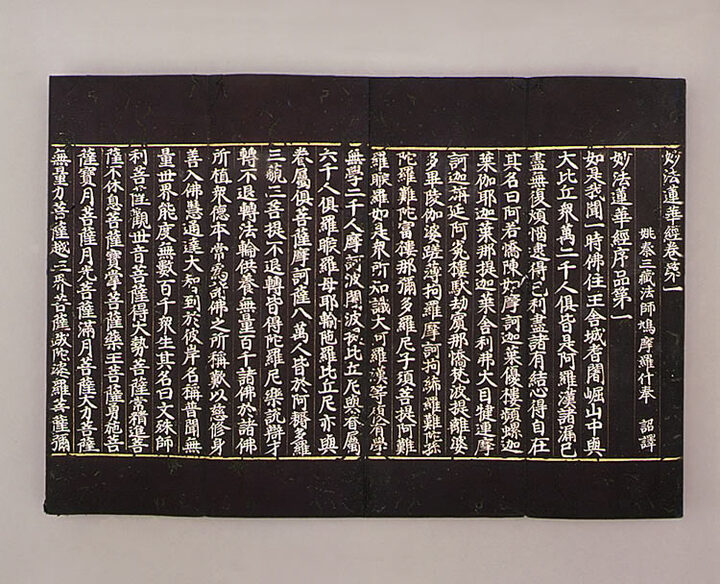 妙法蓮華經卷第一
姚秦三藏法師鳩摩羅什奉 詔譯
妙法蓮華經序品第一
如是我聞一時佛住王舍城耆闍崛山中與
大比丘衆萬二千人俱皆是阿羅漢諸漏已
盡無復煩惱逮得己利盡諸有結心得自在
其名曰阿若憍陳如摩訶迦葉優樓頻螺迦
葉伽耶迦葉那提迦葉舍利弗大目揵連摩
訶迦旃延阿㝹樓馱劫賓那憍梵波提離婆
多畢陵伽婆蹉薄拘羅摩訶拘絺羅難陀孫
陀羅難陀富樓那彌多羅尼子須菩提阿難
羅睺羅如是衆所知識大阿羅漢等復有學
無學二千人摩訶波闍波提比丘尼與眷屬
六千人俱羅睺羅母耶輸陁羅比丘尼亦與
眷屬俱菩薩摩訶薩八萬人皆於阿耨多羅
三藐三菩提不退轉皆得陀羅尼樂說辯才
轉不退轉法輪供養無量百千諸佛於諸佛
所植衆德本常爲諸佛之所稱歎以慈修身
善入佛慧通達大智到於彼岸名稱普聞無
量世界能度無數百千衆生其名曰文殊師
利菩薩觀世音菩薩得大勢菩薩常精進菩
薩不休息菩薩寶掌菩薩藥王菩薩勇施菩
薩寶月菩薩月光菩薩滿月菩薩大力菩薩
無量力菩薩越三界菩薩跋陀婆羅菩薩彌